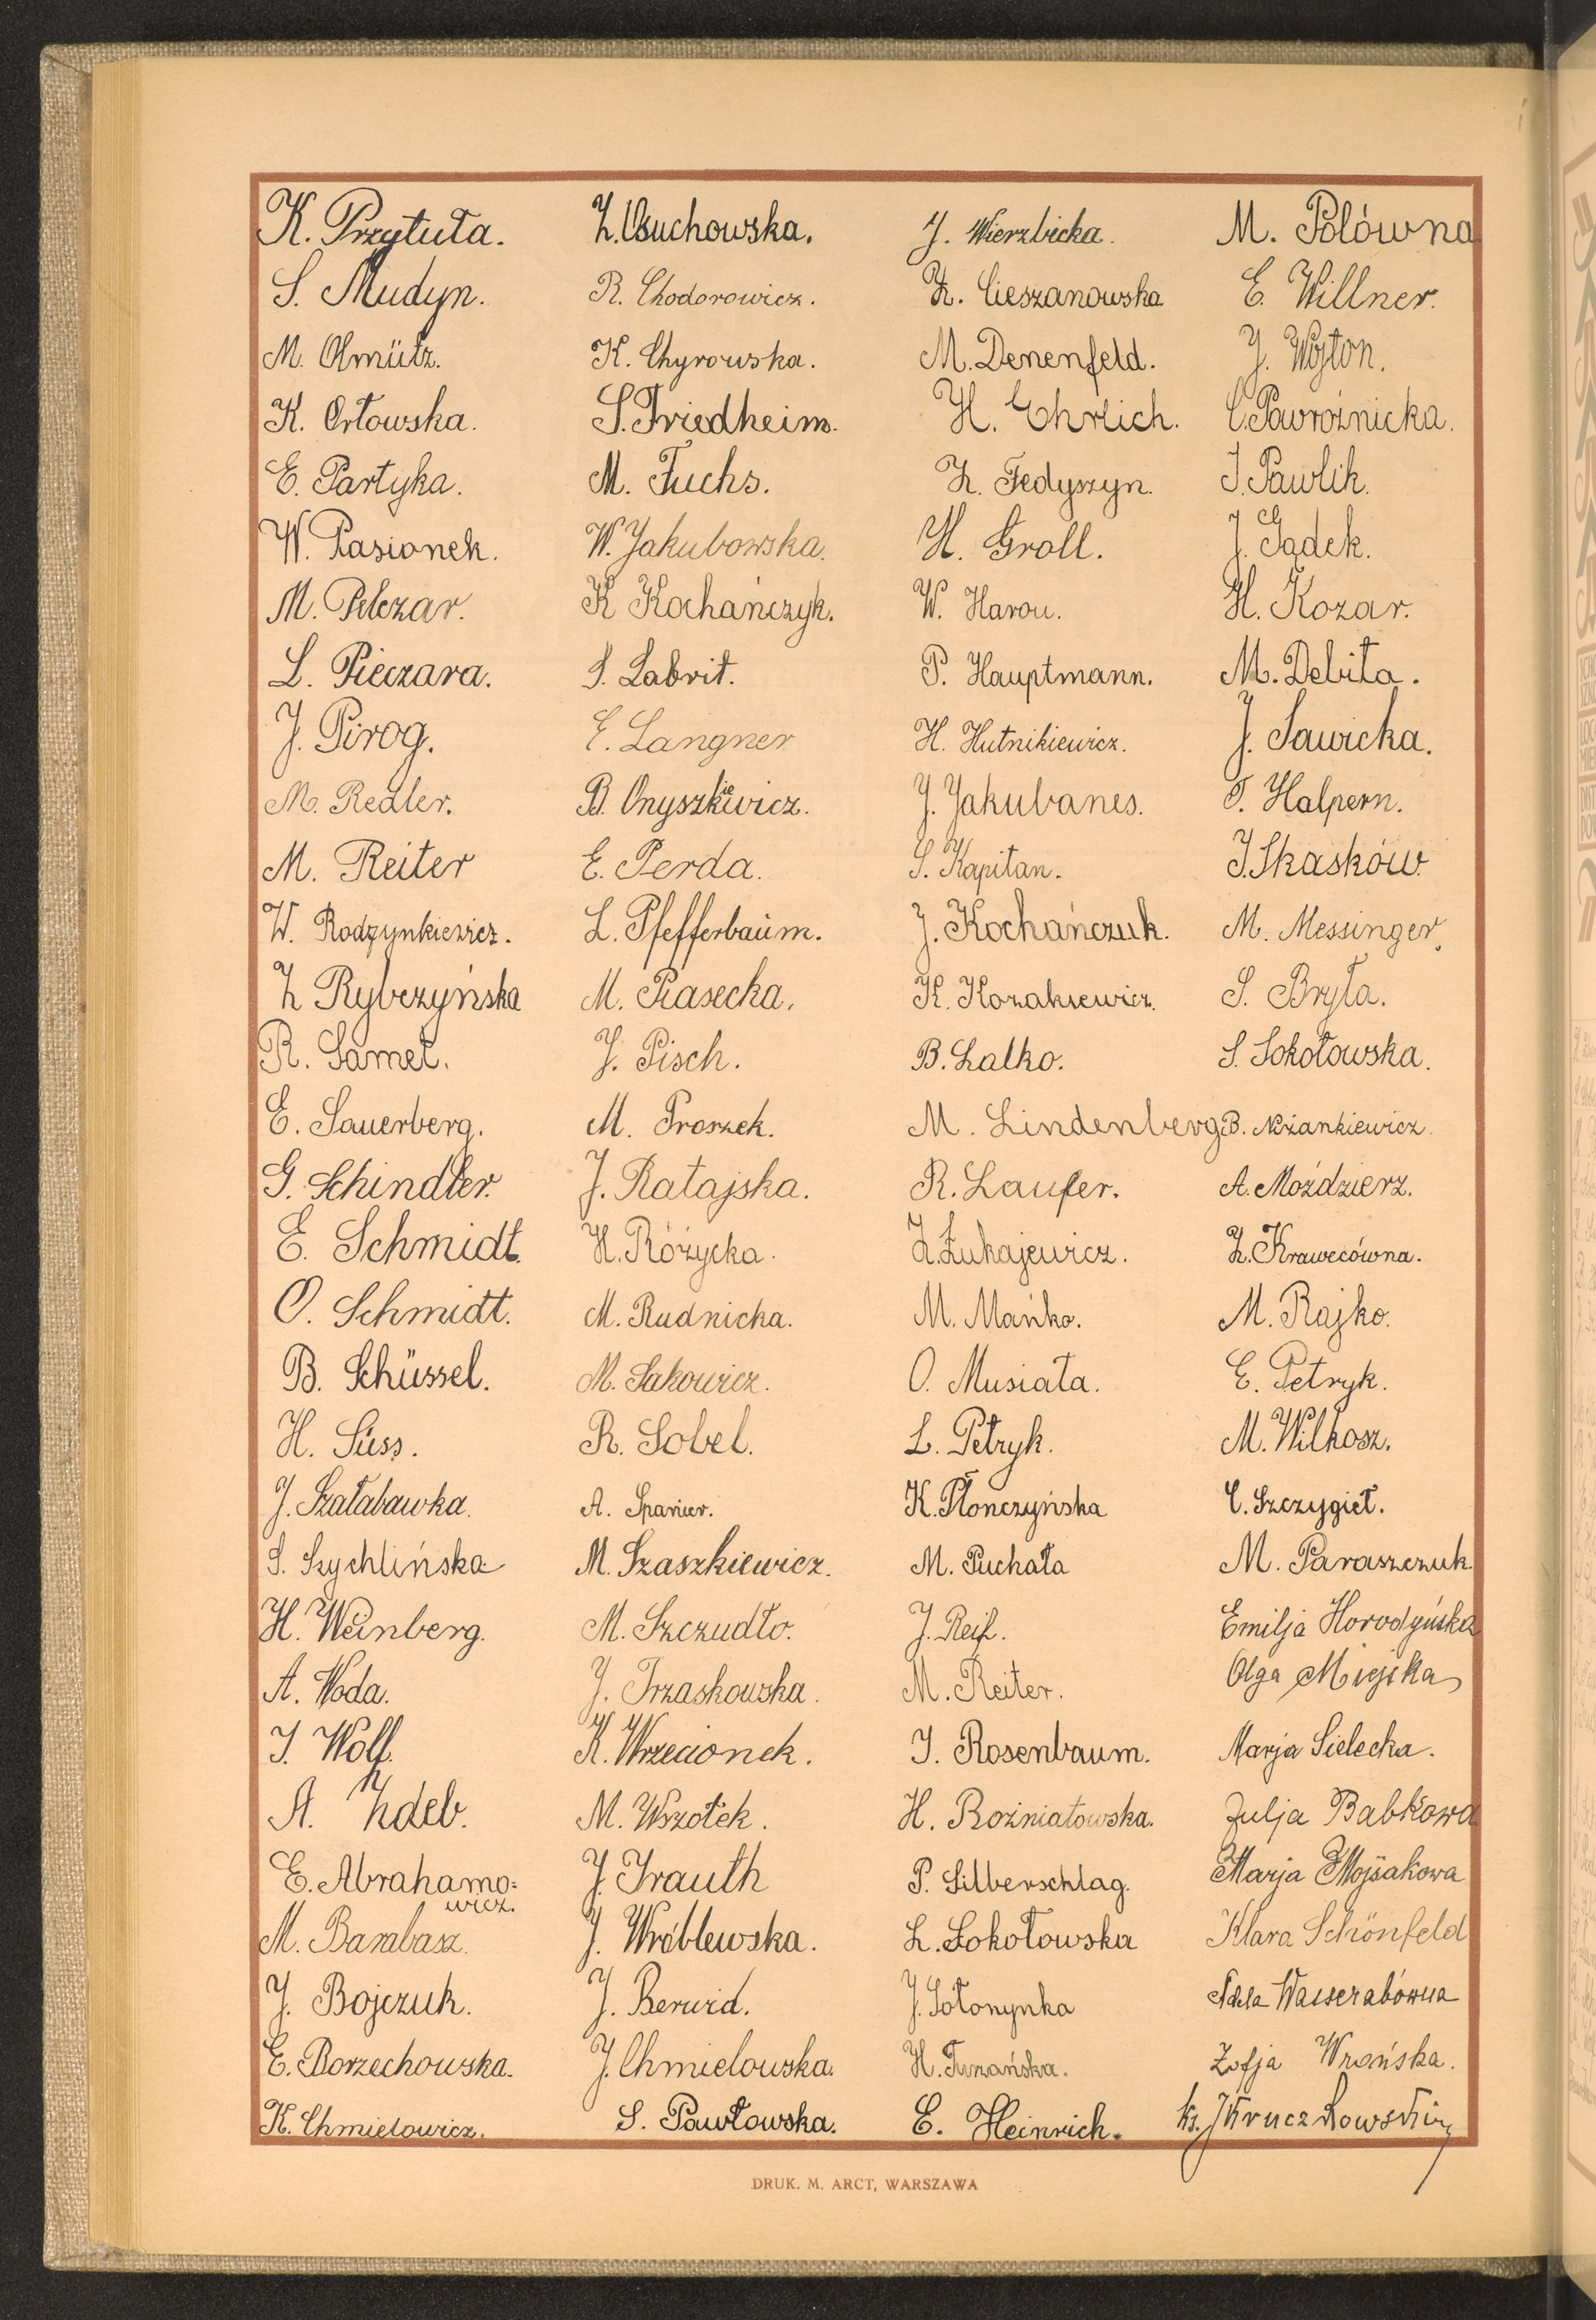 K. Przytuła.
S. Mudyn.
M. Olmütz.
K. Orłowska.
E. Partyka.
W. Pasionek.
M. Pelczar.
L. Pieczara.
J. Pirog.
M. Redler.
M. Reiter
W. Rodzynkiewicz.
Z Rybczyńska
R. Samet.
E. Sauerberg.
G. Schindler.
E. Schmidt.
O. Schmidt.
B. Schüssel.
H. Süss.
J. Szałabawka.
S. Szychlińska
H. Weinberg.
A. Woda.
J. Wolf.
A. Zdeb.
E. Abrahamo=
wicz.
M. Barabasz.
J. Bojczuk.
E. Borzechowska.
K. Chmielowicz.
Z. Osuchowska.
R. Chodorowicz.
K. Chyrowska.
S. Friedheim.
M. Fuchs.
W. Jakubowska.
K Kochańczyk.
S. Labrit.
E. Langner
B. Onyszkiewicz.
E. Perda.
L. Pfefferbaum.
M. Piasecka.
J. Pisch.
M. Proszek.
J. Ratajska.
H. Różycka.
M. Rudnicka.
M. Sakowicz.
R. Sobel.
A. Spanier.
M. Szaszkiewicz.
M. Szczudło.
J. Trzaskowska.
K. Wrzecionek.
M. Wszołek.
J. Trauth
J. Wróblewska.
J. Berwid.
J. Chmielowska.
S. Pawłowska.
J. Wierzbicka.
Z. Cieszanowska
M. Denenfeld.
H. Ehrlich.
Z. Fedyszyn.
H. Groll.
W. Harou.
P. Hauptmann.
H. Hutnikiewicz.
J. Jakubanes.
S. Kapitan.
J. Kochańczuk.
K. Kozakiewicz.
B. Lalko.
M. Lindenberg
R. Laufer.
Z. Łukajewicz.
M. Mańko.
O. Musiała.
L. Petryk.
K. Płonczyńska
M. Puchała
J. Reif.
M. Reiter.
J. Rosenbaum.
H. Rożniatowska.
P. Silberschlag.
Z. Sokołowska
J. Sołonynka
H. Turzańska.
E. Heinrich.
M. Polówna
E. Willner.
J. Wojton.
C. Pawroźnicka.
J. Pawlik.
J. Gądek.
H. Kozar.
M. Debiła.
J. Sawicka.
T. Halpern.
J. Skasków.
M. Messinger.
S. Bryła.
S. Sokołowska.
B. Niżankiewicz.
A. Moździerz.
Z. Krawecówna.
M. Rajko.
E. Petryk.
M. Wilkosz.
C. Szczygieł.
M. Paraszczuk.
Emilja Horodyńska
Olga Miejska
Marja Sielecka.
Julja Babkowa
Marja Mojsakowa
Klara Schönfeld
Adela Wasserabówna
Zofja Wrońska.
ks. J Kruczkowski
DRUK. M. ARCT, WARSZAWA